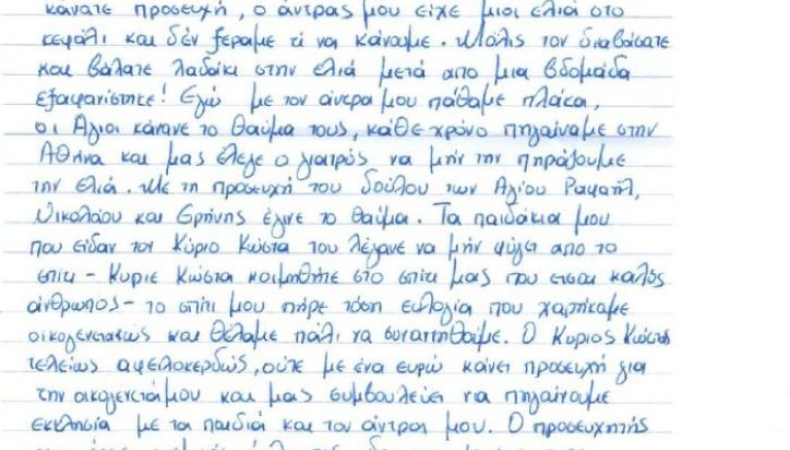 κάνατε προσευχή, ο άντρας μου είχε μια ελιά στο
κεφάλι και δέν ξέραμε τί να κάνουμε. Μόλις τον διαβάσατε
και βάλατε λαδάκι στην ελιά μετά απο μια βδομάδα
εξαφανίστηκε! Εγώ με τον άντρα μου πάθαμε πλάκα,
οι Άγιοι κάνανε το θαύμα τους, κάθε χρόνο πηγαίναμε στην
Αθήνα και μας έλεγε ο γιατρός να μήν την πηράζουμε
την ελιά. Με τη προσευχή του δούλου των Αγίου Ραφαήλ,
Νικολάου και Ερήνης έγινε το θαύμα. Τα παιδάκια μου
που είδαν τον Κύριο Κώστα του λέγανε να μήν φύγει απο το
σπίτι - Κύριε Κώστα κοιμηθήτε στο σπίτι μας που εισαι καλός
άνθρωπος - το σπίτι μου πήρε τόση ευλογία που χαρήκαμε
οικογενειακώς και θέλαμε πάλι να συναντηθούμε. Ο Κύριος Κώστας
τελείως αφελοκερδώς, ούτε με ένα ευρώ κάνει προσευχή για
την οικογένειάμου και μας συμβουλεύει να πηγαίνουμε
εκκλησία με τα παιδιά και τον άντρα μου. Ο προσευχητής